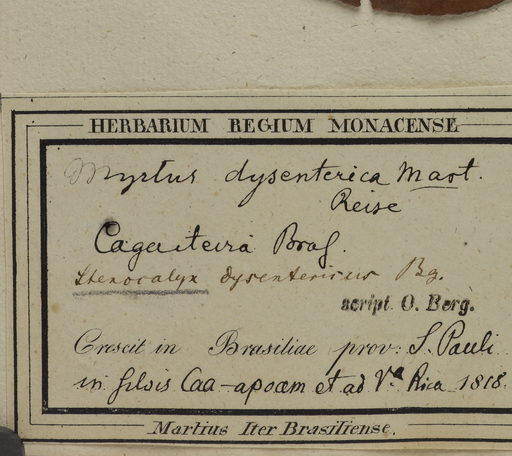 HERBARIUM REGIUM MONACENSE
Myrtus dysenterica Mart.
Reise
Cagaiteira Bras.
Stenocalyx dysentericus Bg.
script. O. Berg.
Crescit in Brasiliae prov: S. Pauli
in silvis Caa-apoam et ad Va Rica 1818.
Martius Iter Brasiliense.